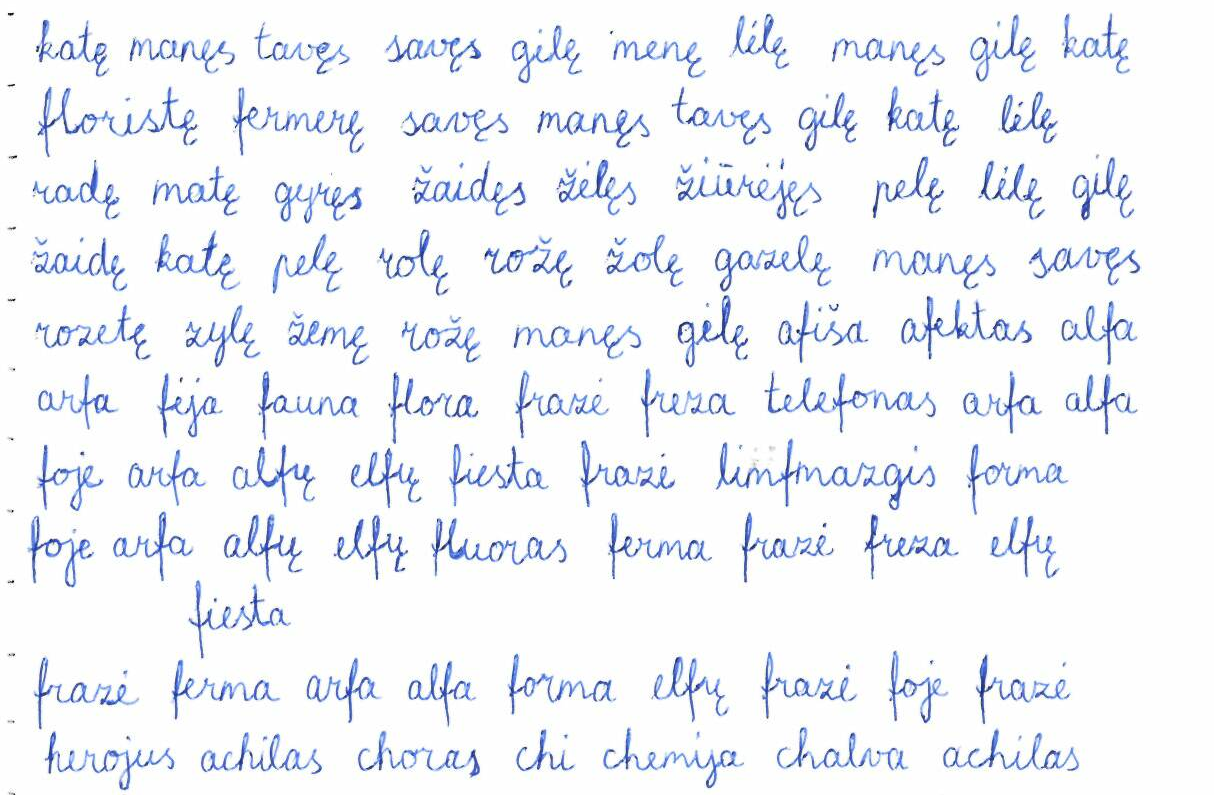 katę manęs tavęs savęs gilę menę lėlę manęs gilę katę
floristę fermerę savęs manęs tavęs gilę katę lėlę
radę matę gyręs žaidęs žėlęs žiūrėjęs pelę lėlę gilę
žaidę katę pelę rolę rožę žolę gazelę manęs savęs
rozetę zylę žemę rožę manęs gėlę afiša afektas alfa
arfa fėja fauna flora frazė freza telefonas arfa alfa
foje arfa alfų elfų fiesta frazė limfmazgis forma
foje arfa alfų elfų fluoras ferma frazė freza elfų
fiesta
frazė ferma arfa alfa forma elfų frazė foje frazė
herojus achilas choras chi chemija chalva achilas